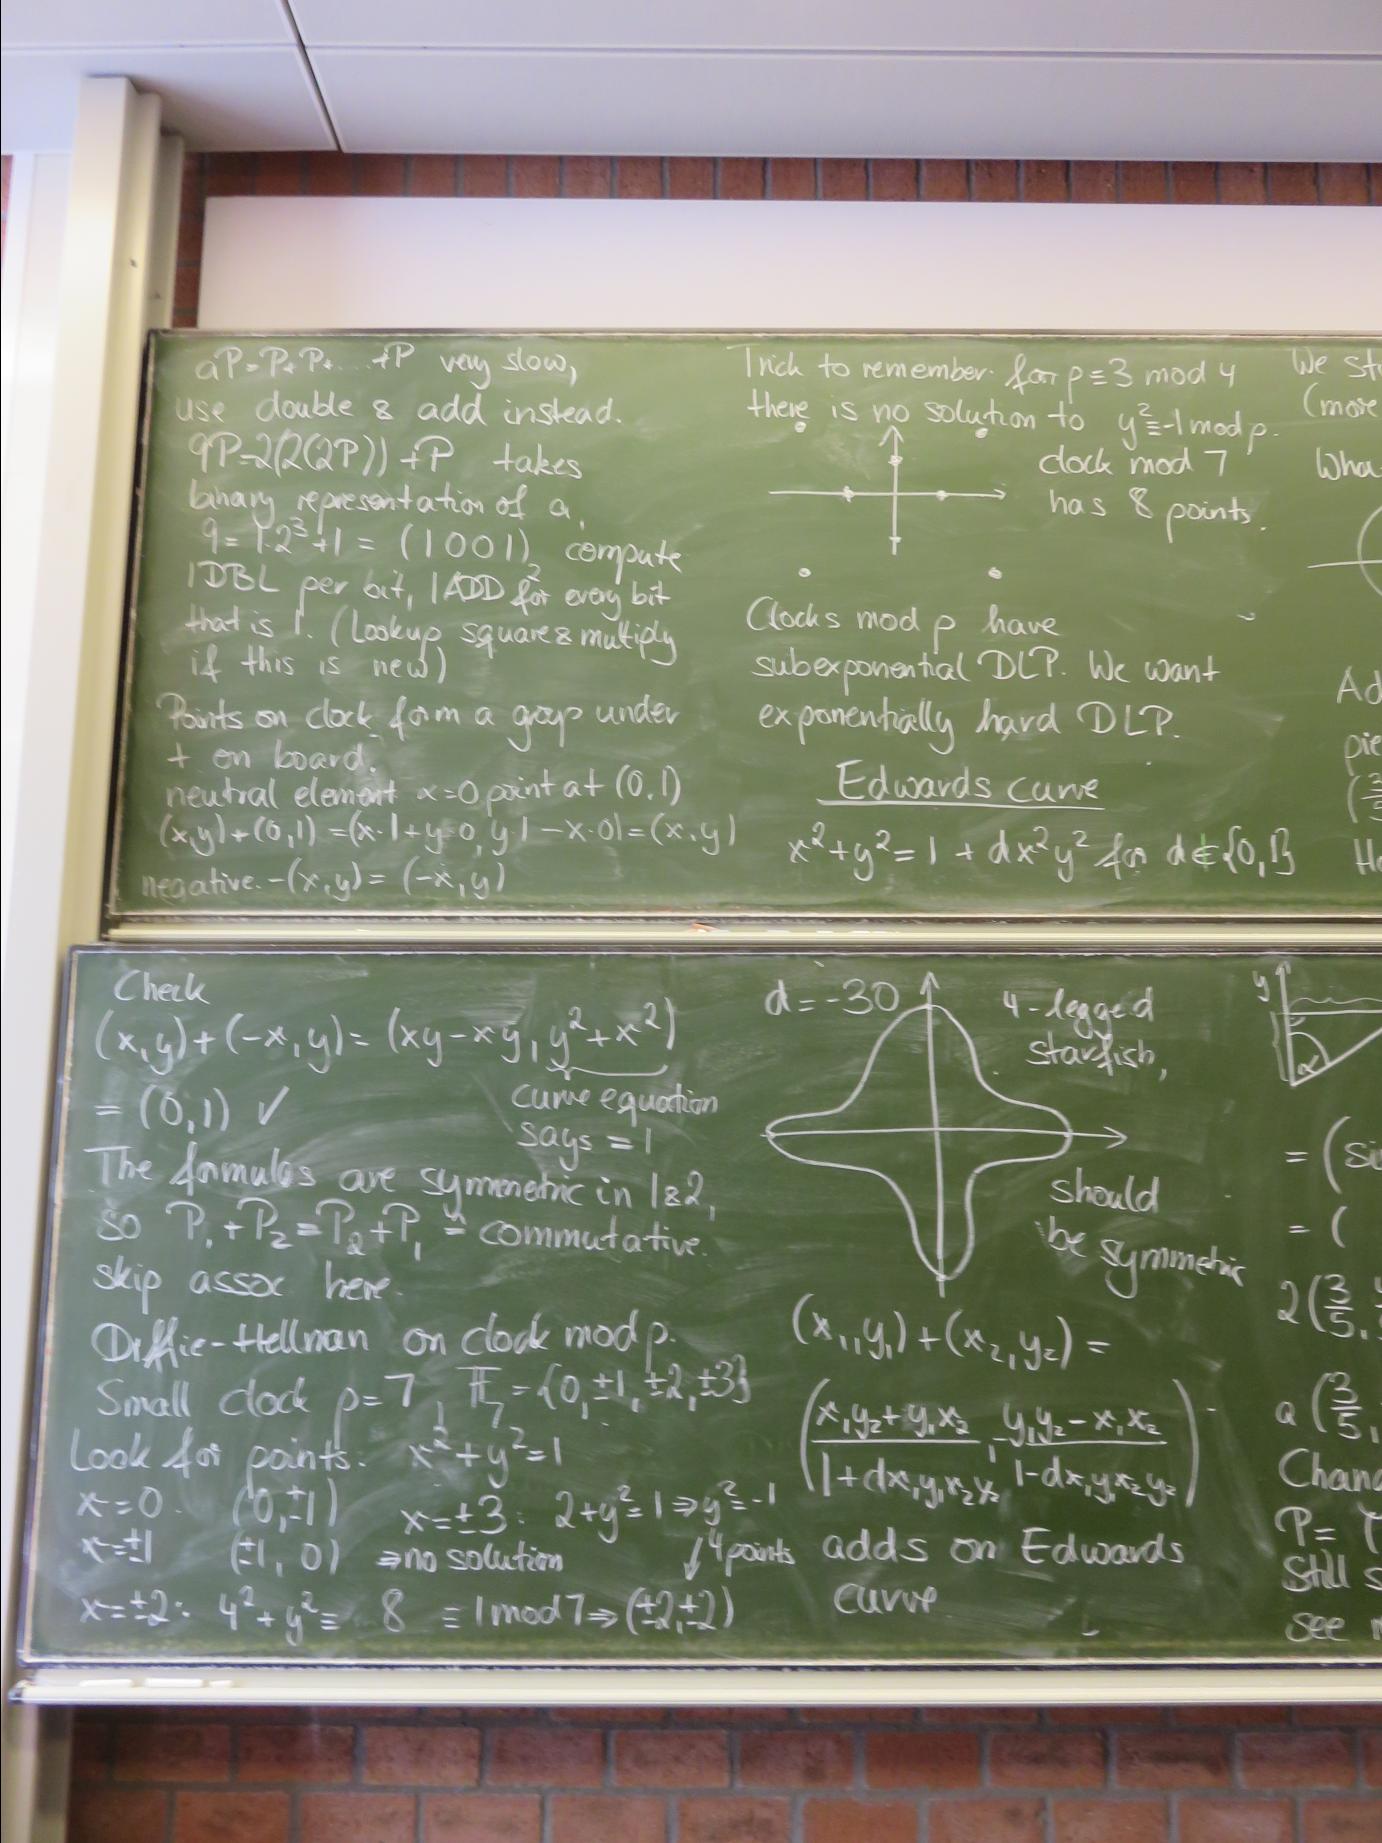 aP=P+P+...+P very slow,
use double & add instead.
9P=2(2(2P))+P takes
binary representation of a,
9=1·2³+1=(1001)₂ compute
1DBL per bit, 1ADD for every bit
that is 1. (Lookup square & multiply
if this is new)
Points on clock form a group under
+ on board.
neutral element α=0 point at (0,1)
(x,y)+(0,1)=(x·1+y·0, y·1-x·0)=(x,y)
negative -(x,y)=(-x,y)
Trick to remember: for p≡3 mod 4
there is no solution to y²≡-1 mod p.
clock mod 7
has 8 points.
Clocks mod p have
subexponential DLP. We want
exponentially hard DLP.
Edwards curve
x²+y²=1+dx²y² for d∉{0,1}
We st
(more
Wha
Ad
pie
(3/5
Ha
Check
(x,y)+(-x,y)=(xy-xy, y²+x²)
= (0,1) ✓
curve equation
says = 1
The formulas are symmetric in 1&2,
so P₁+P₂=P₂+P₁ = commutative.
skip assoc here.
Diffie-Hellman on clock mod p.
Small clock p=7, F₇={0,±1,±2,±3}
Look for points: x²+y²=1
x=0: (0,±1) x=±3: 2+y²=1⇒y²=-1
x=±1 (±1,0) ⇒no solution ↓4 points
x=±2: 4²+y²≡ 8 ≡1 mod 7⇒(±2,±2)
d=-30
4-legged
starfish,
should
be symmetric
(x₁,y₁)+(x₂,y₂)=
((x₁y₂+y₁x₂)/(1+dx₁y₁x₂y₂), (y₁y₂-x₁x₂)/(1-dx₁y₁x₂y₂))
adds on Edwards
curve
y
α
=(si
=(
2(3/5,
a(3/5,
Chan
P=
Still s
see